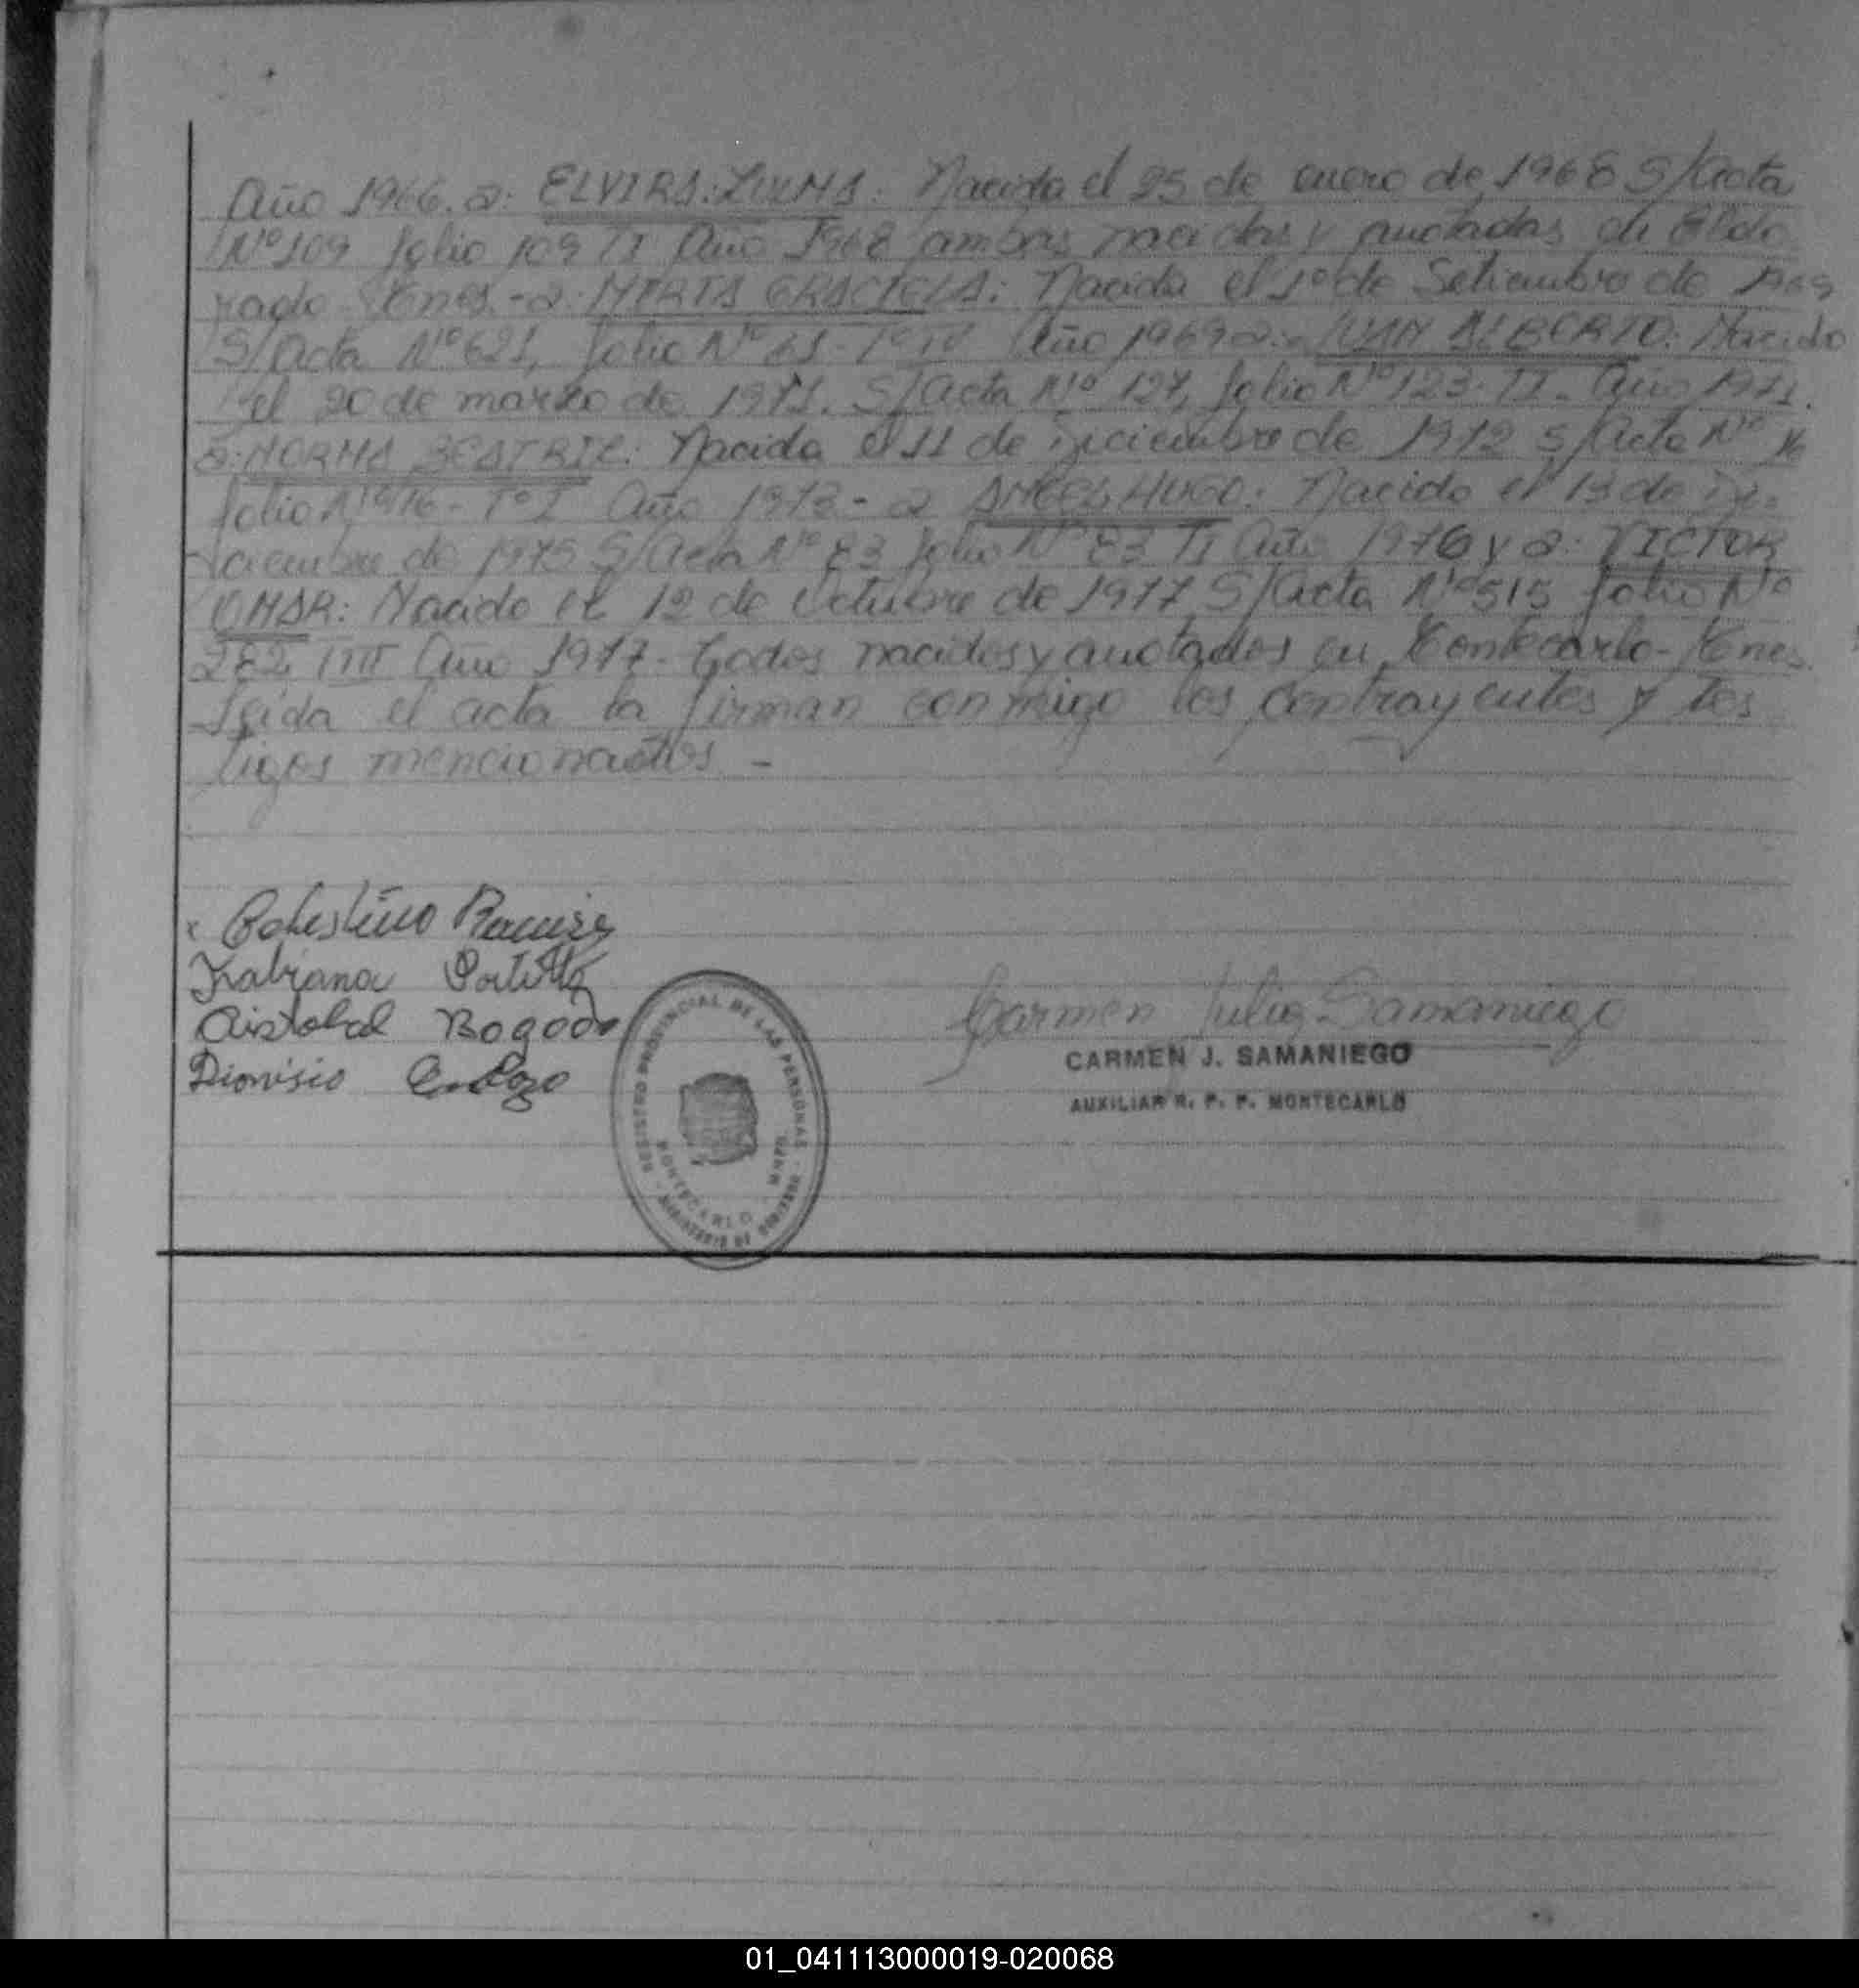 Año 1966. a: ELVIRA ZULMA: Nacida el 25 de enero de 1968 S/Acta
Nº 109 folio 109 TI Año 1968 ambas nacidas y anotadas de Eldo
rado - Mnes. - a: MIRTA GRACIELA: Nacida el 1º de Setiembre de 1969
S/Acta Nº 621, folio Nº Tº IV Año 1969 a: JUAN ALBERTO: Nacido
el 20 de marzo de 1971. S/Acta Nº 127, folio Nº 123. TI. Año 1971.
a: NORMA BEATRIZ: Nacida el 11 de Diciembre de 1972 S/Acta Nº 16
folio Nº 16 - Tº I Año 1973 - a ANGEL HUGO: Nacido el 13 de Di
ciembre de 1975 S/Acta Nº 83 folio Nº 83 TI Año 1976 y a: VICTOR
OMAR: Nacido el 12 de Octubre de 1977 S/Acta Nº 515 folio Nº
282 TIII Año 1977. Todos nacidos y anotados en Montecarlo - Mnes.
Leida el acta la firman conmigo los contrayentes y tes
tigos mencionados -
Celestino Ramirez
Fabiana Portillo
Cristobal
Dionisio
Carmen Julia Samaniego
CARMEN J. SAMANIEGO
AUXILIAR R. P. P. MONTECARLO
REGISTRO PROVINCIAL DE LAS PERSONAS - MINISTERIO DE GOBIERNO
MONTECARLO - MNES.
01_041113000019-020068